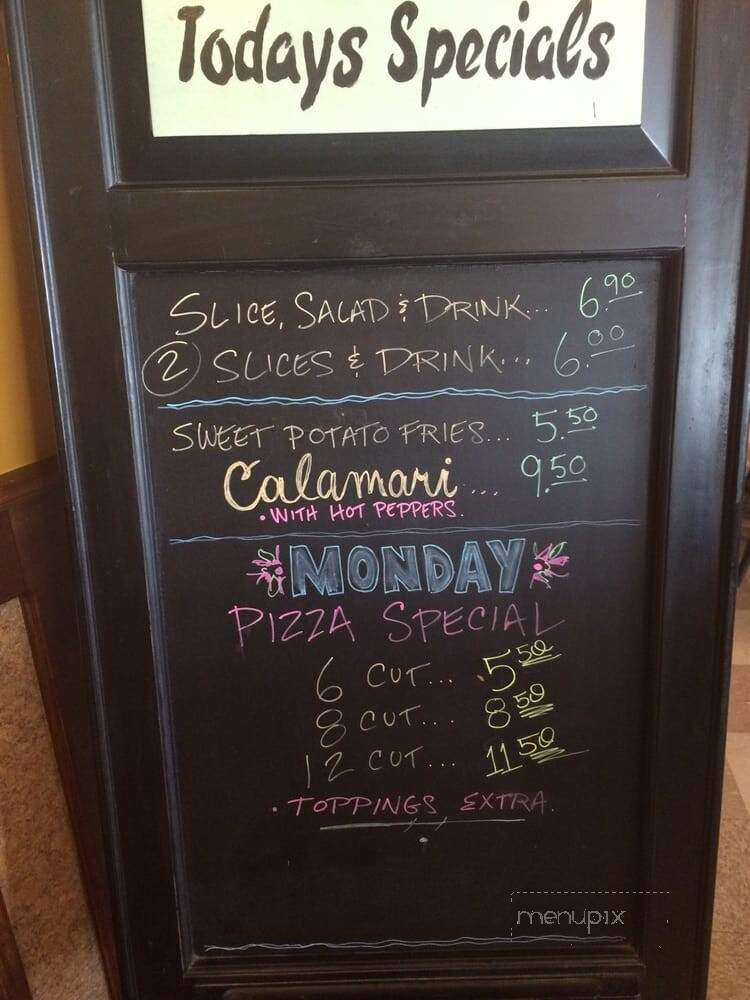 Todays Specials
SLICE, SALAD & DRINK... 6.90
2 SLICES & DRINK... 6.00
SWEET POTATO FRIES... 5.50
Calamari... 9.50
• WITH HOT PEPPERS.
MONDAY
PIZZA SPECIAL
6 CUT... 5.50
8 CUT... 8.50
12 CUT... 11.50
• TOPPINGS EXTRA.
menupix